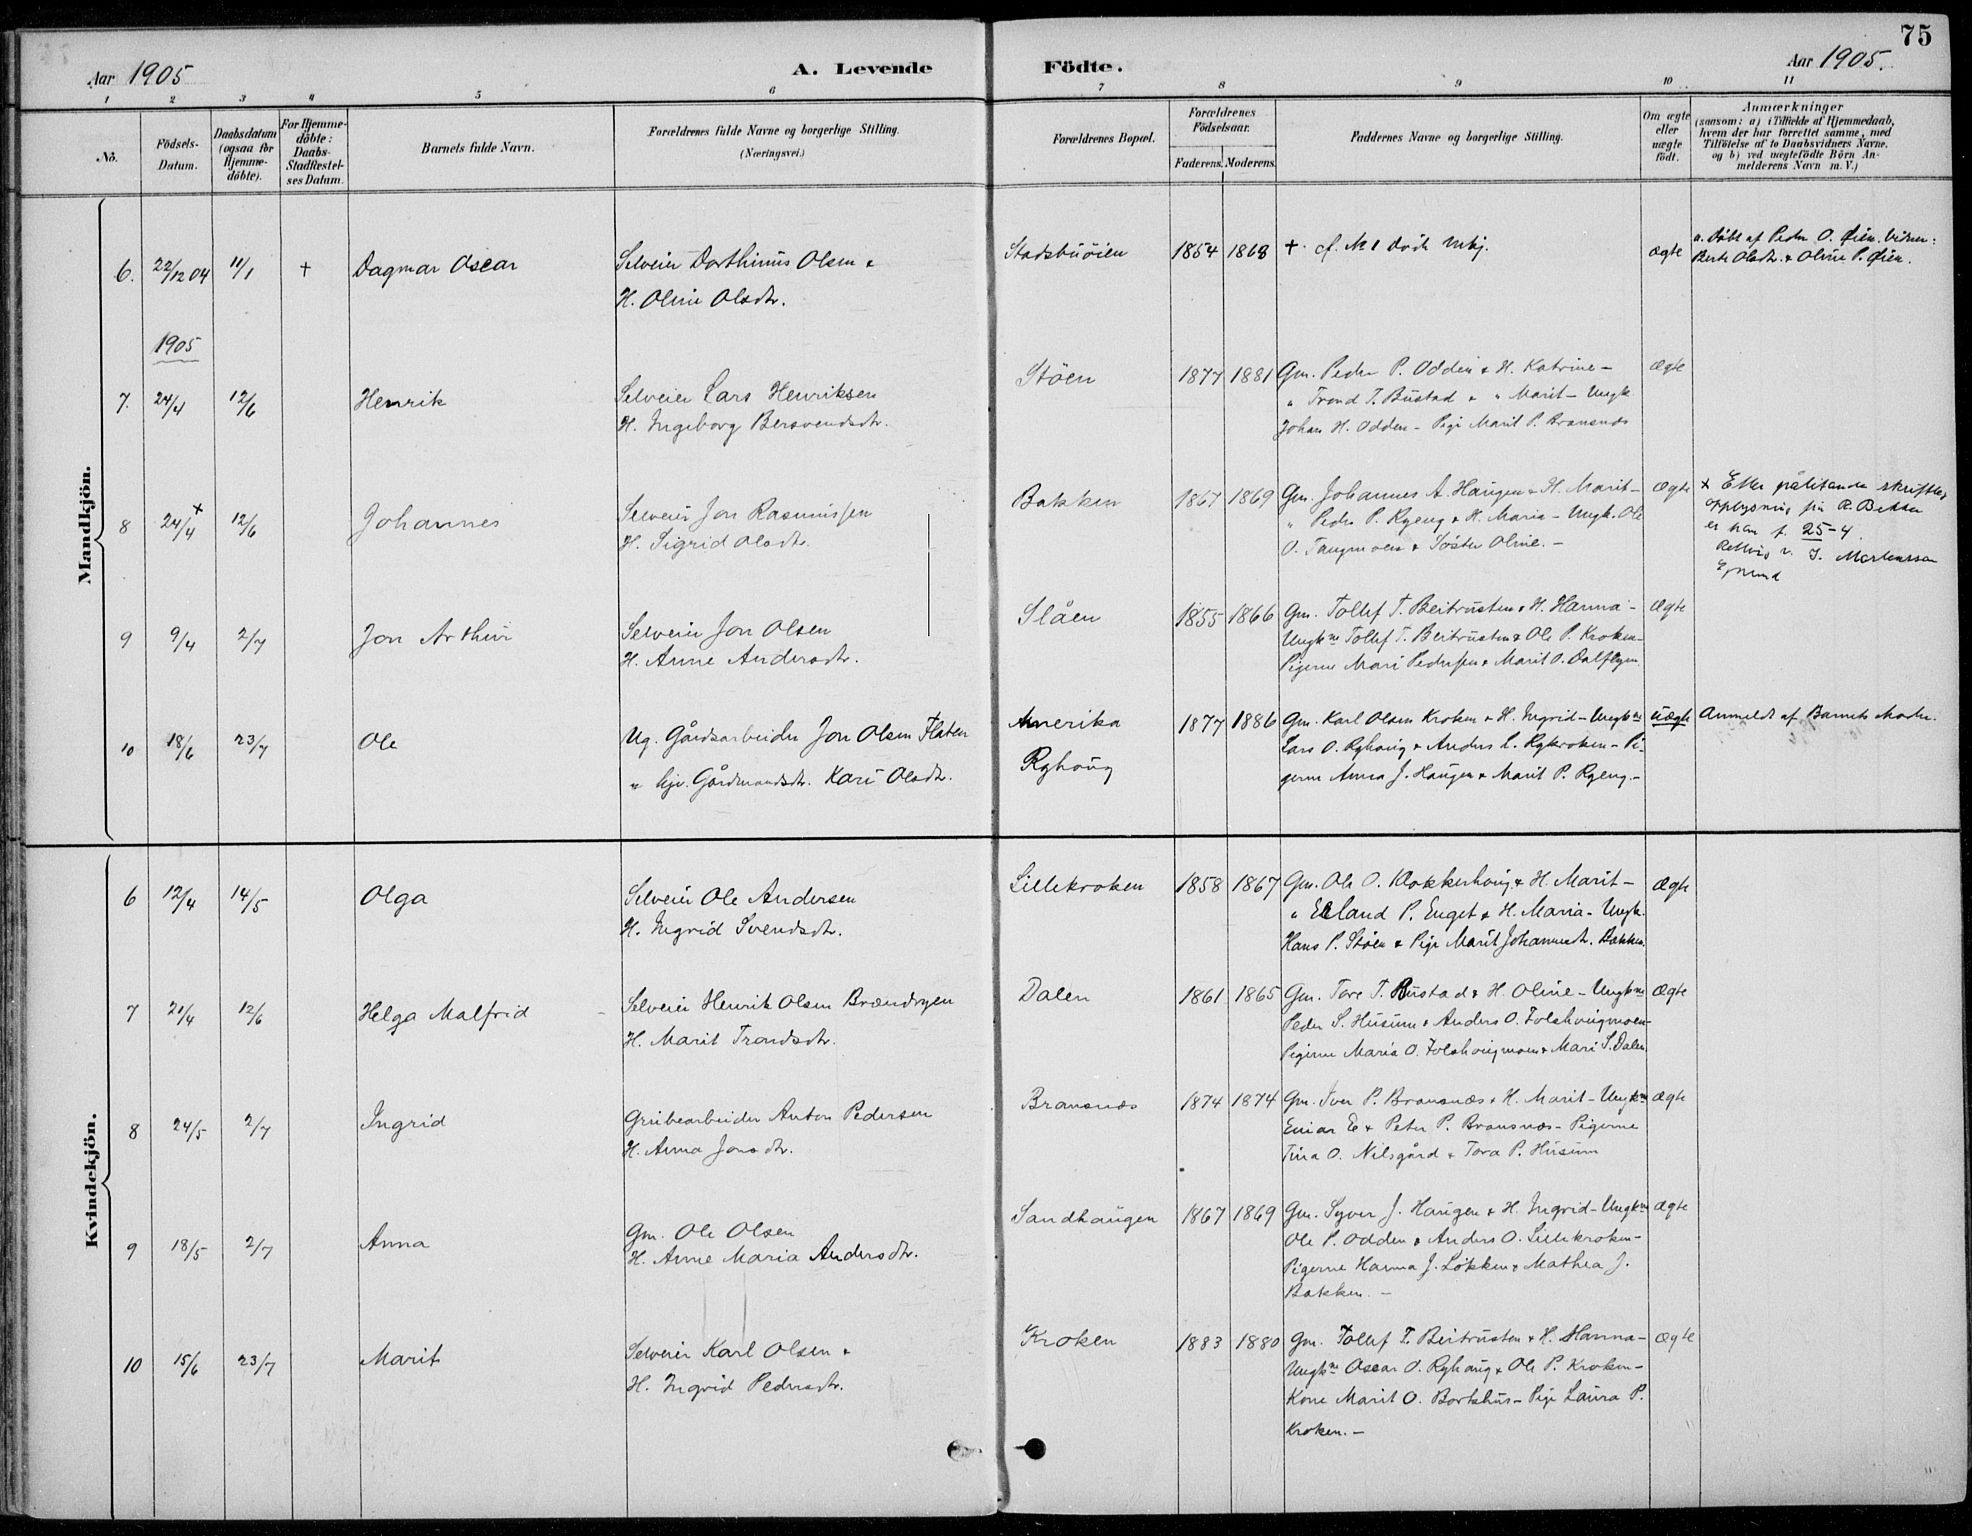 75
Aar 1905
A. Levende Födte.
Aar 1905.
1 2 3 4 5 6 7 8 9 10 11
No.
Födsels-
Datum.
Daabsdatum
(ogsaa for
Hjemme-
döbte).
For Hjemme-
döbte:
Daabs-
Stadfæstel-
ses Datum.
Barnets fulde Navn.
Forældrenes fulde Navne og borgerlige Stilling.
(Næringsvei.)
Forældrenes Bopæl.
Forældrenes
Födselsaar.
Faderens. Moderens.
Faddernes Navne og borgerlige Stilling.
Om ægte
eller
uægte
födt.
Anmærkninger
(saasom: a) i Tilfælde af Hjemmedaab,
hvem der har forrettet samme, med
Tilföielse af to Daabsvidners Navne,
og b) ved uægtefödte Börn An-
melderens Navn m. V.)
Mandkjön.
6. 22/12 04 11/1 + Dagmar Oscar
Selveier Dorthinus Olsen &
H. Oline Olsdtr.
Stadsbuöien 1854 1868 +. cf. No 1 Döde Mkj. ægte
a. Döbt af Peder O. Öien. Vidner:
Berte Olsdtr. & Oline P. Öien.
1905
7. 24/4 12/6 Henrik
Selveier Lars Henriksen
H. Ingeborg Bersvendsdtr.
Stöen 1877 1881 Gm. Peder P. Odden & H. Katrine – Ægte
" Trond T. Bustad & " Marit – Ungk.
Johan H. Odden – Pige Marit P. Bransnæs
8 24/4 + 12/6 Johannes
Selveier Jon Rasmussen
H. Sigrid Olsdtr.
Bakken 1867 1869 Gm. Johannes A. Haugen & H. Marit – Ægte
" Peder P. Ryeng & H. Maria – Ungk. Ole
O. Tangmoen & Söster Oline. –
+ Etter pålitende skriftleg
opplysning frå R. Bekken
er han f. 25-4.
Retting v. J. Mortensson
Egnund
9 9/4 2/7 Jon Arthur
Selveier Jon Olsen
H. Anne Andersdtr.
Slåen 1855 1866 Gm. Tollef T. Beitrusten & H. Hanna – Ægte
Ungkne Tollef T. Beitrusten & Ole P. Kroken –
Pigerne Mari Pedersen & Marit O. Dalflyen.
10 18/6 23/7 Ole
Ug. Gårdsarbeider Jon Olsen Flaten
" hjv. Gårdmandsdtr. Kari Olsdtr.
Amerika
Ryhoug
1877 1886 Gm. Karl Olsen Kroken & H. Ingrid – Ungkne Uægte Anmeldt af Barnets Moder.
Lars O. Ryhoug & Anders L. Rykroken – Pi-
gerne Anna J. Haugen & Marit P. Ryeng. –
Kvindekjön.
6 12/4 14/5 Olga
Selveier Ole Andersen
H. Ingrid Svendsdtr.
Lillekroken 1858 1867 Gm. Ole O. Klokkerhoug & H. Marit – Ægte
" Elland P. Enget & H. Maria – Ungk.
Hans P. Stöen & Pige Marit Johannesdtr. Bakken.
7 21/4 12/6 Helga Malfrid
Selveier Henrik Olsen Brændryen
H. Marit Trondsdtr.
Dalen 1861 1865 Gm. Tore T. Bustad & H. Oline – Ungkne Ægte
Peder S. Husum & Anders O. Tolshougmoen –
Pigerne Maria O. Tolshougmoen & Mari S. Dalen.
8 24/5 2/7 Ingrid
Grubearbeider Anton Pedersen
H. Anna Jonsdtr.
Bransnæs 1874 1874 Gm. Iver P. Bransnæs & H. Marit – Ungkne Ægte
Einar E & Peter P. Bransnæs – Pigerne
Tina O. Nilsgård & Tora P. Husum
9 18/5 2/7 Anna
Gm. Ole Olsen
H. Anne Maria Andersdtr.
Sandhaugen 1867 1869 Gm. Syver J. Haugen & H. Ingrid – Ungkne Ægte
Ole P. Odden & Anders O. Lillekroken –
Pigerne Hanna J. Lökken & Mathea J.
Bakken. –
10 15/6 23/7 Marit
Selveier Karl Olsen &
H. Ingrid Pedersdtr.
Kroken 1883 1880 Gm. Tollef T. Beitrusten & H. Hanna – Ægte
Ungkne Oscar O. Ryhaug & Ole P. Kroken –
Kone Marit O. Bortshus – Pige Laura P.
Kroken. –